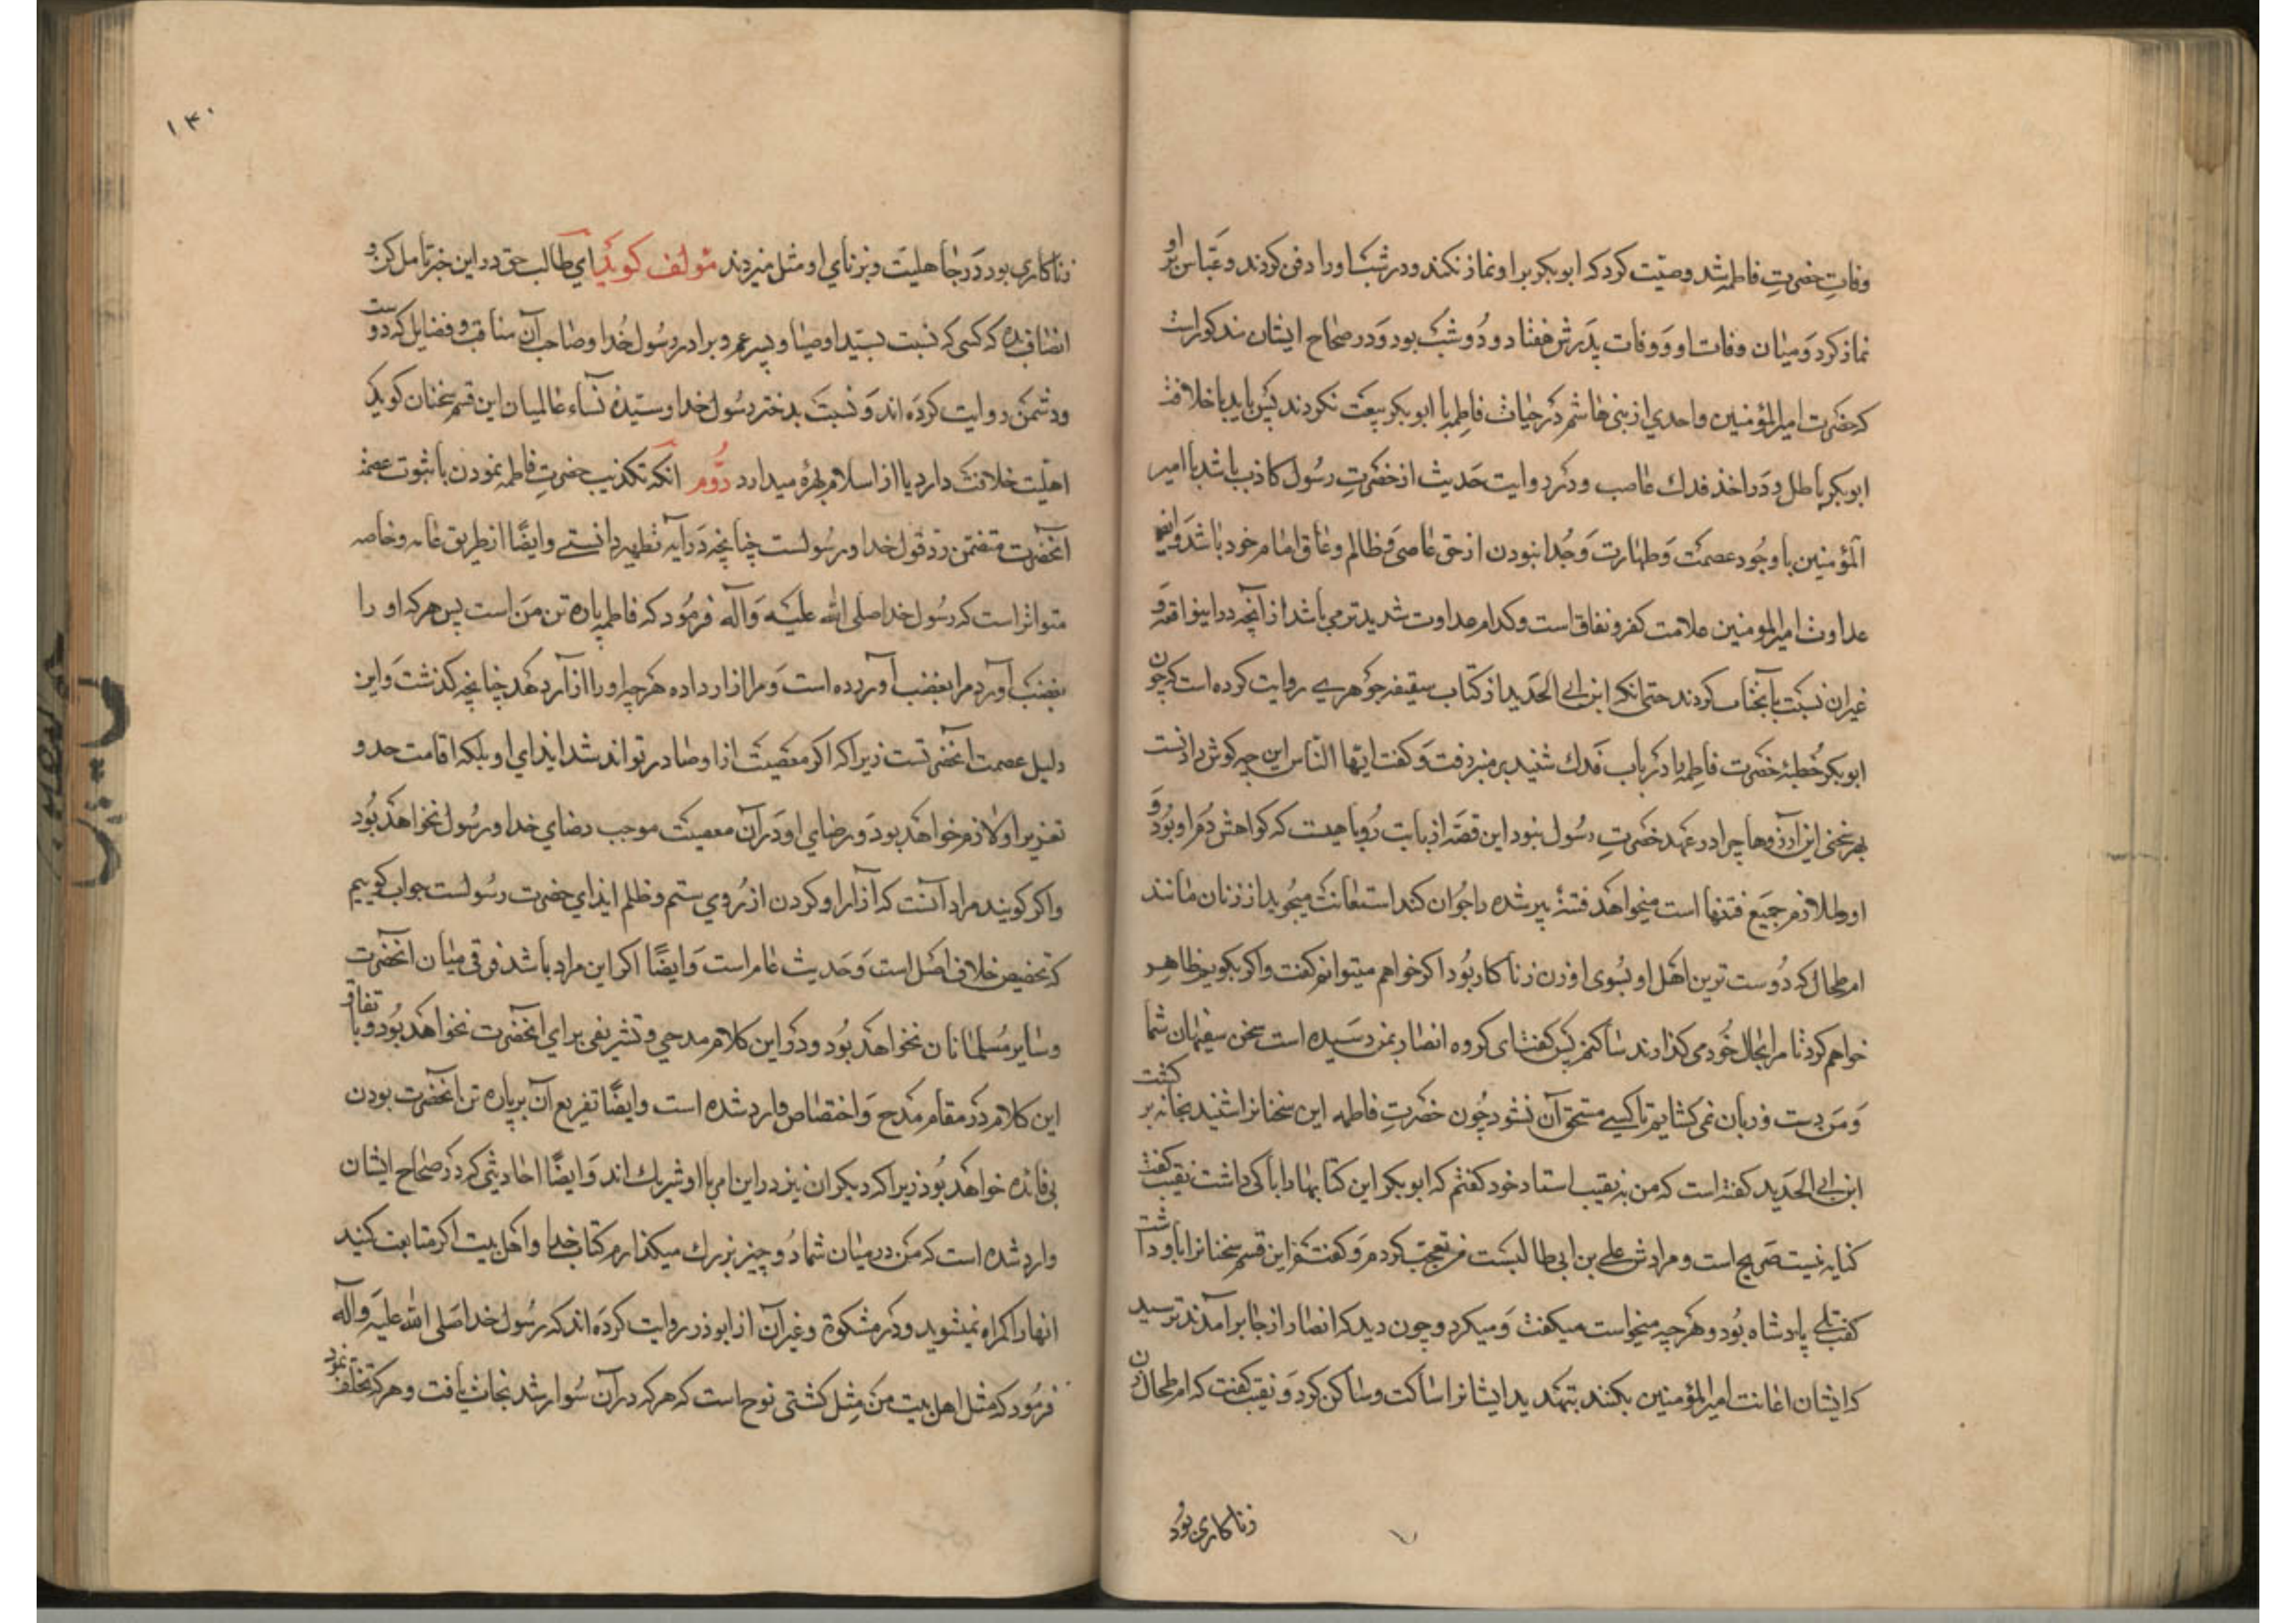 وفات حضرت فاطمه شد وصیت کرد که ابوبکر بر او نماز نکند و در شب او را دفن کردند و عباس بر او
نماز کرد و میان وفات او و وفات پدرش هفتاد و دو شب بود و در صحاح ایشان مذکور است
که حضرت امیرالمؤمنین و احدی از بنی هاشم در حیات فاطمه با ابوبکر بیعت نکردند پس باید یا خلافت
ابوبکر باطل و در اخذ فدک غاصب و در روایت حدیث از حضرت رسول کاذب باشد یا امیر
المؤمنین با وجود عصمت و طهارت و جدا نبودن از حق عاصی و ظالم و عاق امام خود باشد و ایضا
عداوت امیرالمومنین علامت کفر و نفاق است و کدام عداوت شدیدتر می باشد از آنچه در اینواقعه و
غیر ان نسبت بآنجناب کردند حتی انکه ابن ابی الحدید از کتاب سقیفه جوهری روایت کرده است که چون
ابوبکر خطبه حضرت فاطمه را در باب فدک شنید بر منبر رفت و گفت ایها الناس این چه گوش دادنست
بهر سخنی این آرزوها چرا در عهد حضرت رسول نبود این قصه از بابت روباهیست که گواهش دم او بود و
او ملازم جمیع فتنها است میخواهد فتنه پیر شده را جوان کند استعانت میجوید از زنان مانند
ام طحال که دوست ترین اهل او بسوی او زن زناکار بود اگر خواهم میتوانم گفت و اگر بگویم ظاهر
خواهم کرد تا مرا بحال خود می گذارند ساکتم پس گفت ای گروه انصار بمن رسیده است سخن سفیهان شما
و من دست و زبان نمی گشایم تا کسی مستحق آن نشود چون حضرت فاطمه این سخنانرا شنید بخانه برگشت
ابن ابی الحدید گفته است که من به نقیب استاد خود گفتم که ابوبکر این کنایها را با کی داشت نقیب گفت
کنایه نیست صریح است و مرادش علی بن ابی طالبست من تعجب کردم و گفتم این قسم سخنانرا با او داشت
گفت بلی پادشاه بود و هر چه میخواست میگفت و میکرد و چون دید که انصار از جا برآمدند ترسید
که ایشان اعانت امیرالمؤمنین بکنند بتهدید ایشانرا ساکت و ساکن کرد و نقیب گفت که ام طحال زن
زناکاری بود
۱۴۰
زناکاری بود در جاهلیت و بزنای او مثل میزدند مؤلف گوید ای طالب حق در این خبر تامل کن و
انصاف بده که کسی که نسبت بسید اوصیا و پسر عم و برادر رسول خدا و صاحب آن مناقب و فضایل که دوست
و دشمن روایت کرده اند و نسبت بدختر رسول خدا و سیده نساء عالمیان این قسم سخنان گوید
اهلیت خلافت دارد یا از اسلام بهره میدارد دوم انکه تکذیب حضرت فاطمه نمودن با ثبوت عصمت
آنحضرت متضمن رد قول خدا و رسولست چنانچه در آیه تطهیر دانستی و ایضا از طریق عامه و خاصه
متواتر است که رسول خدا صلی الله علیه و آله فرمود که فاطمه پاره تن من است پس هر که او را
بغضب آورد مرا بغضب آورده است و مرا ازار داده هر چه او را ازار دهد چنانچه گذشت و این
دلیل عصمت آنحضرتست زیرا که اگر معصیت از او صادر تواند شد ایذای او بلکه اقامت حد و
تعزیر او لازم خواهد بود و رضای او در آن معصیت موجب رضای خدا و رسول نخواهد بود
و اگر گویند مراد آنست که آزار او کردن از روی ستم و ظلم ایذای حضرت رسولست جواب گوییم
که تخصیص خلاف اصل است و حدیث عام است و ایضا اگر این مراد باشد فرقی میان آنحضرت
و سایر مسلمانان نخواهد بود و در این کلام مدحی و تشریفی برای آنحضرت نخواهد بود و باتفاق
این کلام در مقام مدح و اختصاص وارد شده است و ایضا تفریع آن بر پاره تن آنحضرت بودن
بی فائده خواهد بود زیرا که دیگران نیز در این امر با او شریک اند و ایضا احادیثی که در صحاح ایشان
وارد شده است که من در میان شما دو چیز بزرک میگذارم کتاب خدا و اهل بیت اگر متابعت کنید
انها را گمراه نمیشوید و در مشکوة و غیر آن از ابوذر روایت کرده اند که رسول خدا صلی الله علیه و آله
فرمود که مثل اهل بیت من مثل کشتی نوح است که هر که در آن سوار شد نجات یافت و هر که تخلف نمود